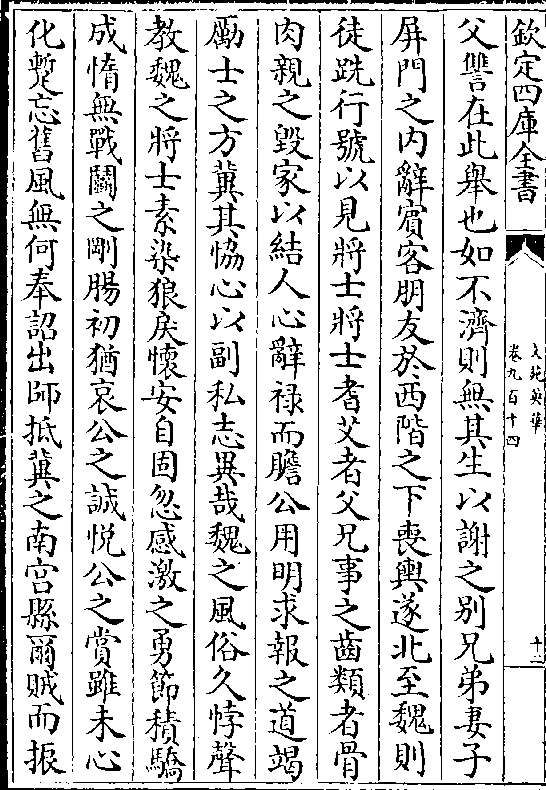 欽定四庫全書
文苑英華
卷九百十四
十二
父讐在此舉也如不濟則無其生以謝之别兄弟妻子
屏門之内辭賓客朋友於西階之下喪輿遂北至魏則
徒跣行號以見將士將士耆艾者父兄事之齒類者骨
肉親之毀家以結人心辭祿而贍公用明求報之道竭
勵士之方冀其恊心以副私志異哉魏之風俗久悖聲
教魏之將士素染狼戾懷安自固忽感激之勇節積驕
成惰無戰鬭之剛腸初猶哀公之誠悦公之賞雖未心
化蹔忘舊風無何奉詔出師抵冀之南宫縣爾賊而振